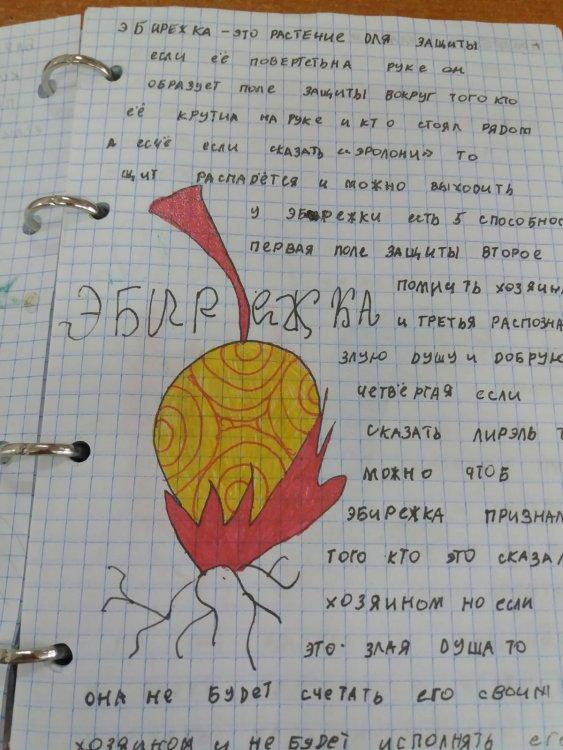 ЭБИРЕЖКА - ЭТО РАСТЕНИЕ ДЛЯ ЗАЩИТЫ
ЕСЛИ ЕЁ ПОВЕРТЕТЬ НА РУКЕ ОН
ОБРАЗУЕТ ПОЛЕ ЗАЩИТЫ ВОКРУГ ТОГО КТО
ЕЁ КРУТИЛ НА РУКЕ И КТО СТОЯЛ РЯДОМ
А ЕСЧЁ ЕСЛИ СКАЗАТЬ «ЭРОЛОНИ» ТО
ЩИТ РАСПАДЁТСЯ И МОЖНО ВЫХОДИТЬ
У ЭБИРЕЖКИ ЕСТЬ 5 СПОСОБНОС
ПЕРВАЯ ПОЛЕ ЗАЩИТЫ ВТОРОЕ
ПОМНИТЬ ХОЗЯИН
ЭБИРЕЖКА
И ТРЕТЬЯ РАСПОЗНА
ЗЛУЮ ДУШУ И ДОБРУЮ
ЧЕТВЁРТАЯ ЕСЛИ
СКАЗАТЬ ЛИРЭЛЬ Т
МОЖНО ЧТОБ
ЭБИРЕЖКА ПРИЗНАЛ
ТОГО КТО ЭТО СКАЗАЛ
ХОЗЯИНОМ НО ЕСЛИ
ЭТО ЗЛАЯ ДУША ТО
ОНА НЕ БУДЕТ СЧЕТАТЬ ЕГО СВОИМ
ХОЗЯИНОМ И НЕ БУДЕТ ИСПОЛНЯТЬ ЕГ